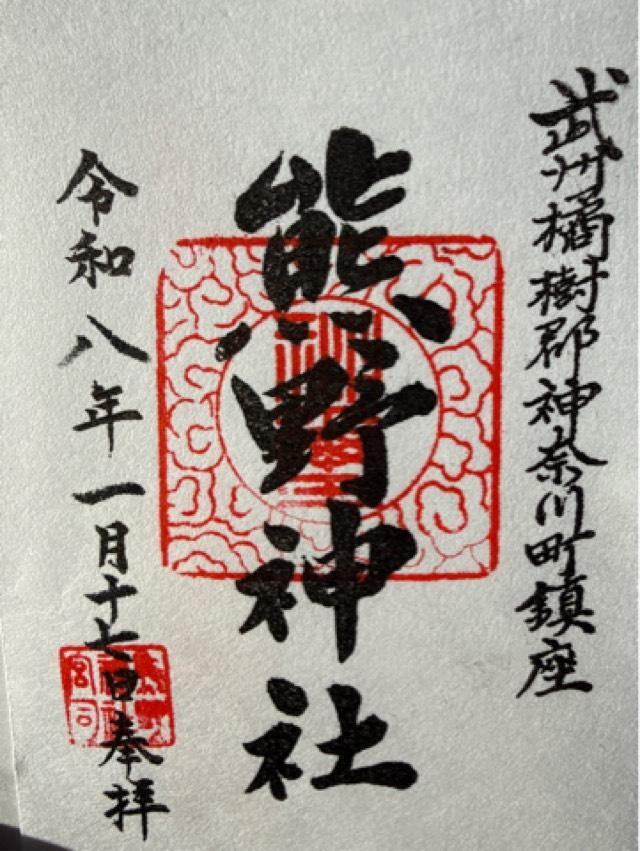 武州橘樹郡神奈川町鎮座
熊野神社
令和八年一月十七日奉拝